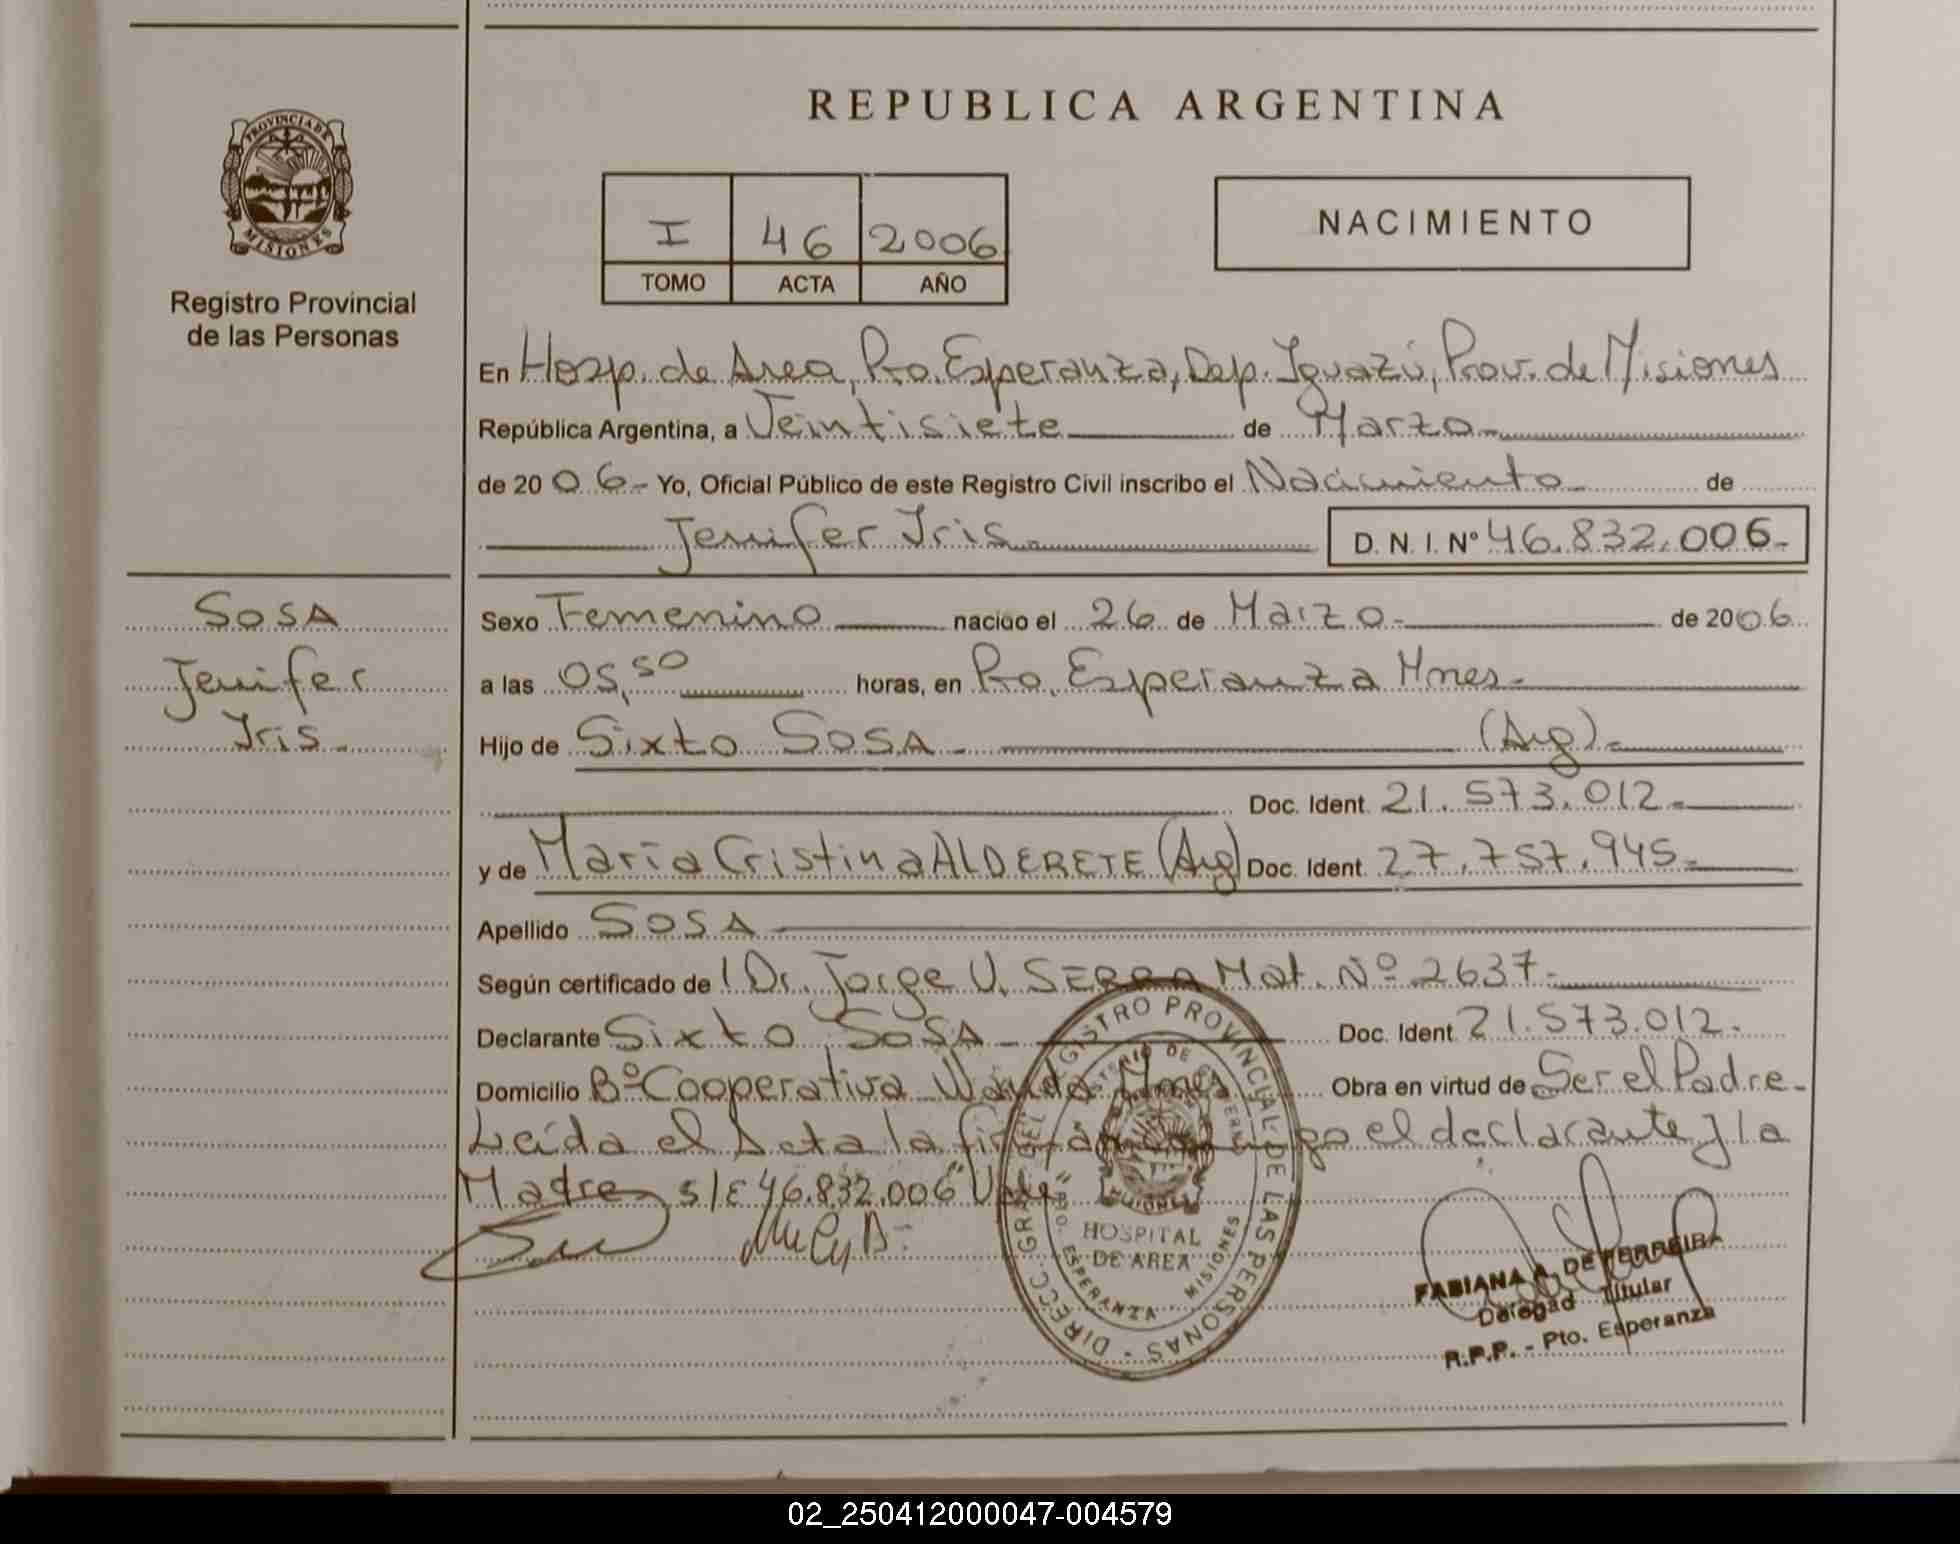 REPUBLICA ARGENTINA
PROVINCIA DE
MISIONES
Registro Provincial
de las Personas
I 46 2006
TOMO ACTA AÑO
NACIMIENTO
En Hosp. de Area, Pto. Esperanza, Dep. Iguazú, Prov. de Misiones
República Argentina, a Veintisiete de Marzo
de 2006 Yo, Oficial Público de este Registro Civil inscribo el Nacimiento de
Jenifer Iris D. N. I. Nº 46.832.006.-
SOSA
Jenifer
Iris
Sexo Femenino nacido el 26 de Marzo de 2006
a las 05,50 horas, en Pto. Esperanza Mnes
Hijo de Sixto SOSA (Arg)
Doc. Ident. 21.573.012
y de María Cristina ALDERETE (Arg) Doc. Ident. 27.757.945
Apellido SOSA
Según certificado de l Dr. Jorge V. SERRA Mat. Nº 2637
Declarante Sixto SOSA Doc. Ident. 21.573.012
Domicilio Bº Cooperativa Wanda Mnes Obra en virtud de Ser el Padre
Leída el Acta la firman conmigo el declarante y la
Madre s/E "46.832.006" Vale
DIRECC. GRAL. DEL REGISTRO PROVINCIAL DE LAS PERSONAS
MINISTERIO DE GOBIERNO
MISIONES
HOSPITAL
DE AREA
PTO. ESPERANZA MISIONES
FABIANA A. DE FERREIRA
Delegad Titular
R.P.P. - Pto. Esperanza
02_250412000047-004579